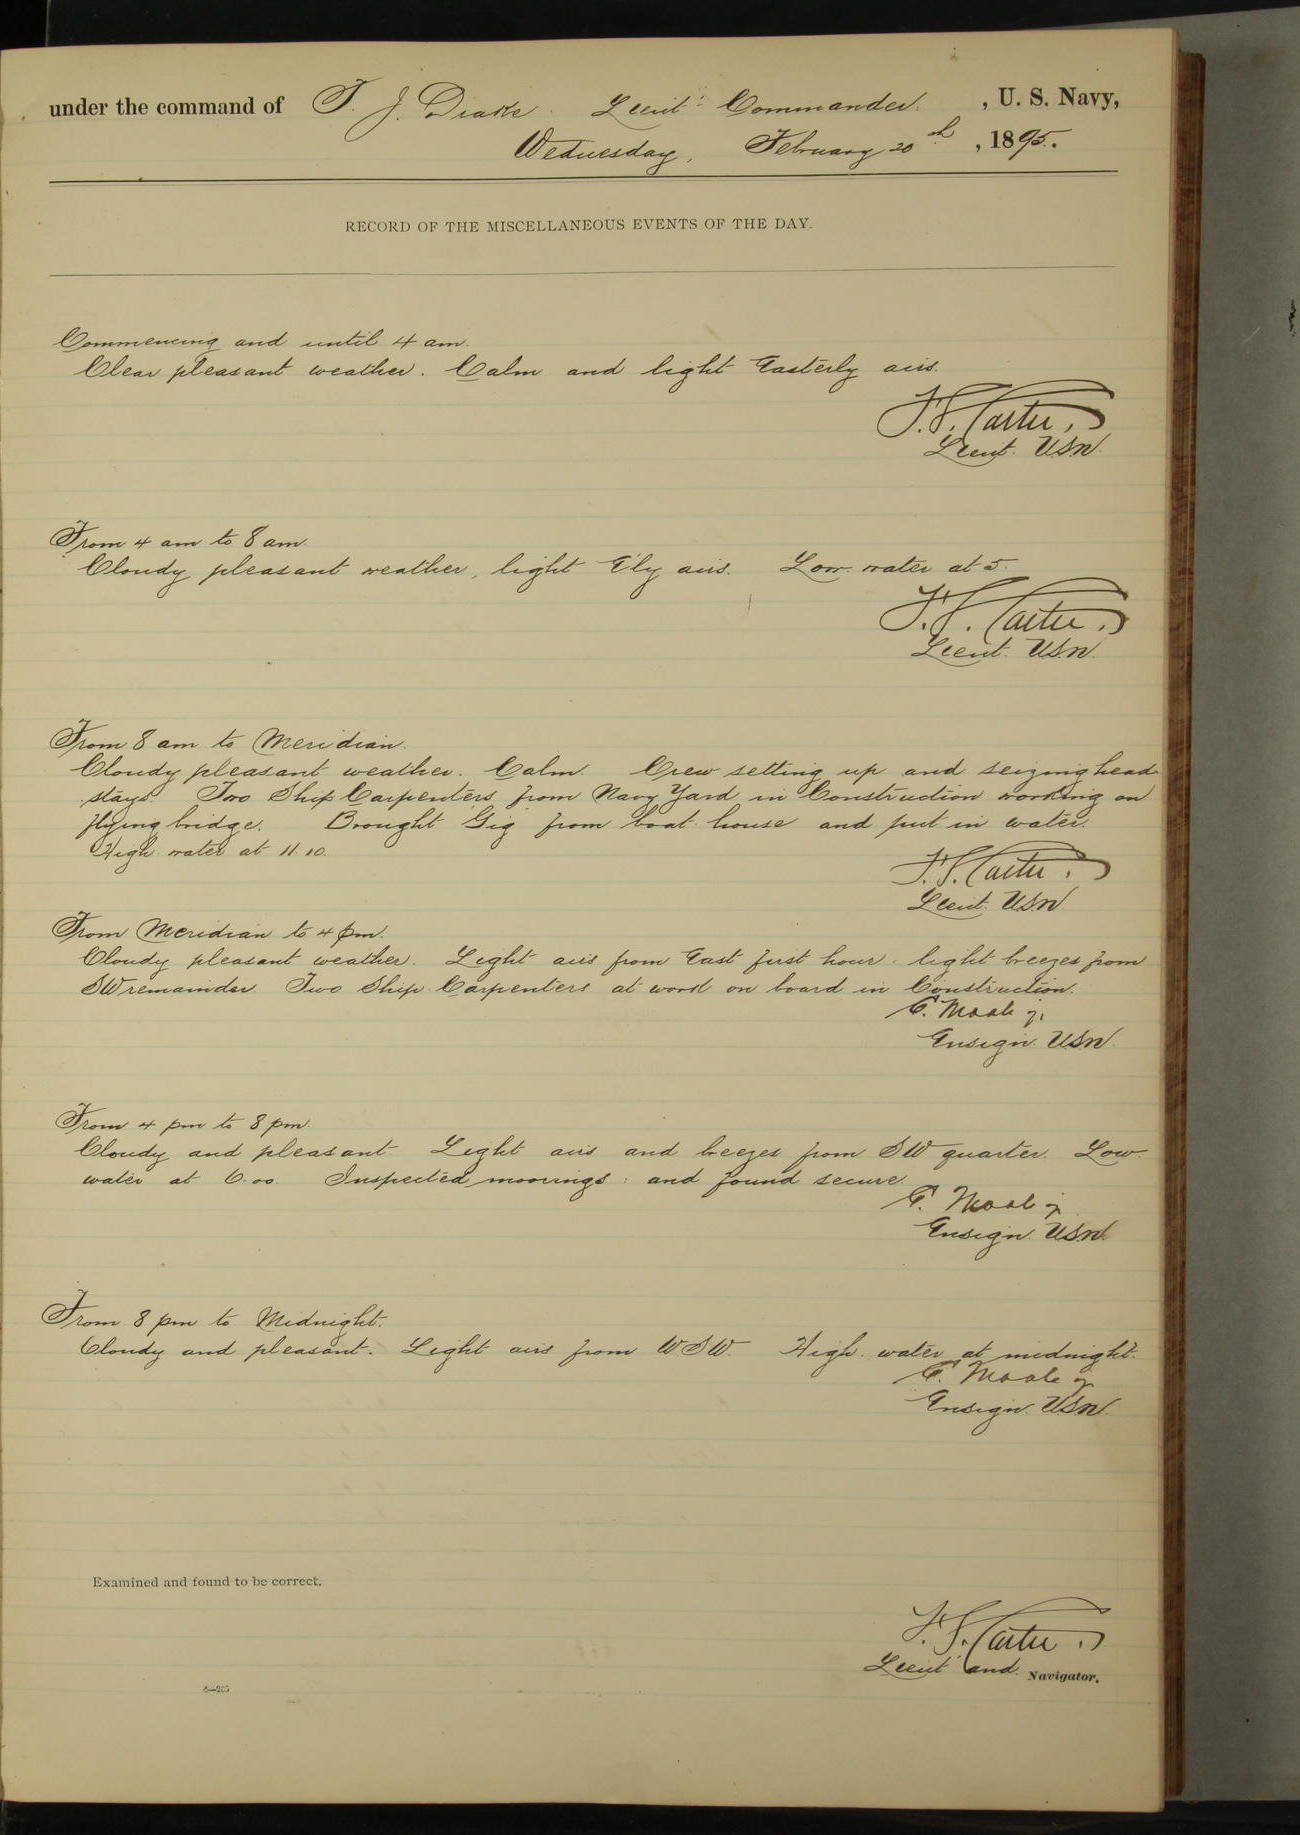 under the command of F. J. Drake. Lieut: Commander. , U. S. Navy,
Wednesday, February 20th , 1895.
RECORD OF THE MISCELLANEOUS EVENTS OF THE DAY.
Commencing and until 4 am.
Clear pleasant weather. Calm and light Easterly airs.
F. S. Carter,
Lieut. USN.
From 4 am to 8 am.
Cloudy pleasant weather, light E'ly airs. Low water at 5.
F. S. Carter,
Lieut. USN.
From 8 am to Meridian.
Cloudy pleasant weather. Calm. Crew setting up and seizing head
stays. Two Ship Carpenters from Navy Yard in Construction working on
flying bridge. Brought Gig from boat house and put in water.
High water at 11.10.
F. S. Carter,
Lieut. USN
From Meridian to 4 pm.
Cloudy pleasant weather. Light airs from East first hour. light breezes from
SW remainder. Two Ship Carpenters at work on board in Construction.
Ensign. USN
From 4 pm to 8 pm.
Cloudy and pleasant. Light airs and breezes from SW quarter. Low
water at 6.00. Inspected moorings: and found secure.
Ensign. USN.
From 8 pm to Midnight.
Cloudy and pleasant. Light airs from WSW. High water at midnight.
Ensign. USN
Examined and found to be correct.
F. S. Carter,
Lieut and Navigator.